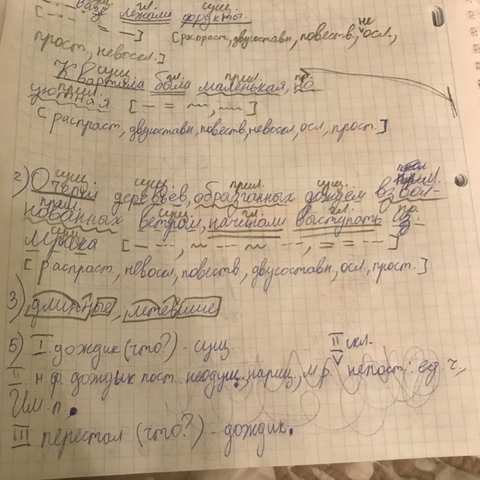 гл. сущ.
лежали фрукты.
[распраст, двусоставн, повеств, не осл.,
прост, невоскл.]
сущ. гл. прил. пр.
Квартира была маленькая, но
прил.
уютная [— = ~, ~]
[распраст, двусоставн, повеств, невоскл, осл, прост.]
сущ. сущ. прил. сущ. прил.
2) Очерки деревьев, обрызганных дождём взвол-
прил. сущ. гл. гл. пр.
нованных ветром, начинали выступать из
сущ.
мрака
[распраст, невоскл, повеств, двусоставн, осл, прост.]
3) длинные, летевшие
5) I. дождик (что?) - сущ.
II скл.
II н.ф. дождык пост. неодуш., нариц., м.р. непост: ед. ч.,
Им. п.
III перестал (что?) - дождик.